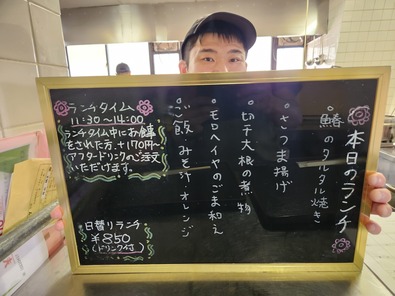 本日のランチ
・鰆のタルタル焼き
・さつま揚げ
・切干大根の煮物
・モロヘイヤのごま和え
・ご飯 みそ汁・オレンジ
ランチタイム
11:30〜14:00
ランチタイム中にお食事
をされた方、+170円〜
アフタードリンクのご注文
いただけます。
日替りランチ
¥850
(ドリンク付)